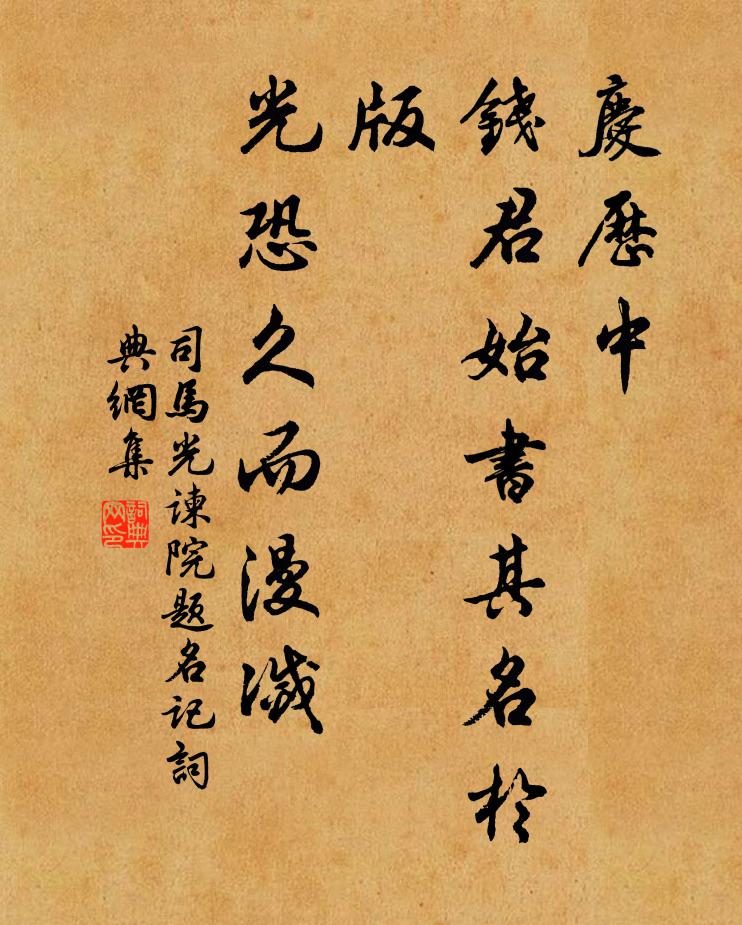 慶歷中
錢君始書其名於
版
光恐久而漫滅
司馬光諫院题名记詞
典網集
詞典
网印